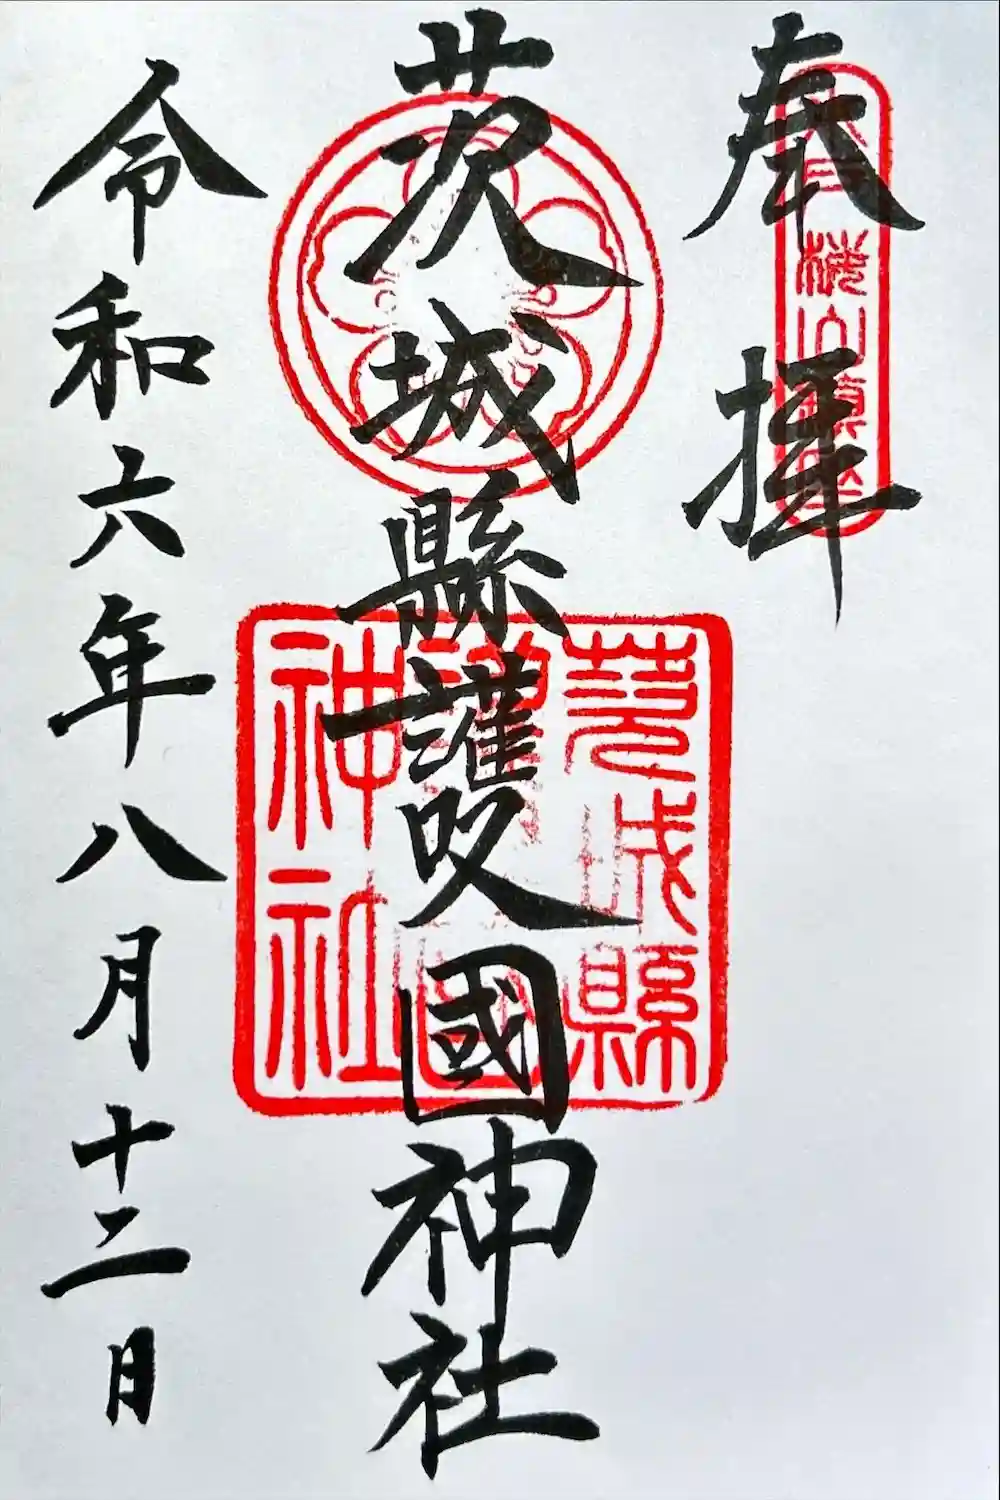 奉拝
茨城縣護國神社
茨城縣
護國
神社
令和六年八月十二日